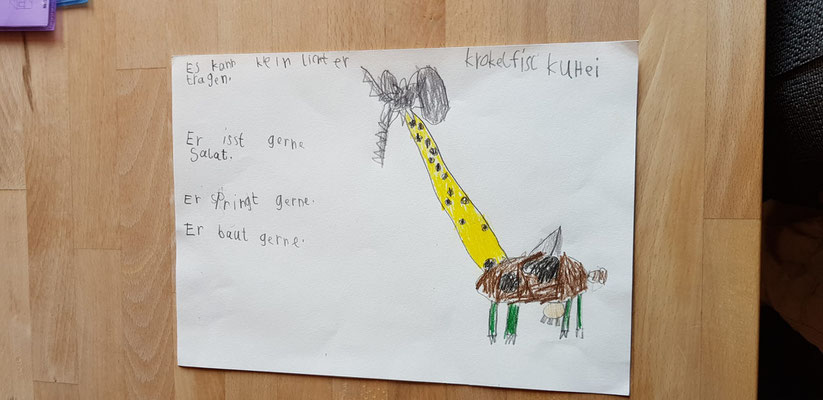 Es kann kein licht er
tragen.
krokelfisl kuHei
Er isst gerne
Salat.
Er springt gerne.
Er baut gerne.